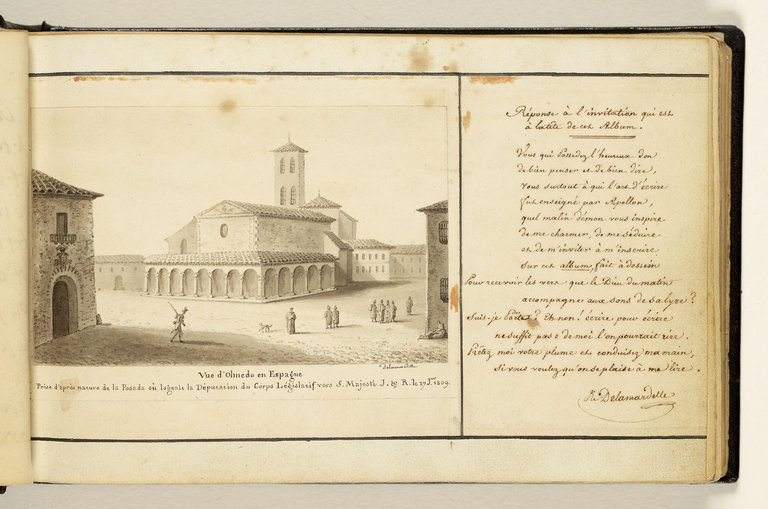 Delamardelle
Vue d'Olmedo en Espagne
Prise d'après nature de la Posada où logeait la Députation du Corps Législatif vers S. Majesté J. & R. le 17 Jr. 1809.
Réponse à l'invitation qui est
à la tête de cet Album.
Vous qui possedez l'heureux don
de bien penser et de bien dire,
vous surtout à qui l'art d'écrire
fut enseigné par Apollon,
quel malin démon vous inspire
de me charmer, de me séduire
et de m'inviter à m'inscrire
sur cet album, fait à dessein
Pour recevoir les vers que le Dieu du matin
accompagne aux sons de sa lyre ?
Suis-je Poëte ? Eh non ! écrire pour écrire
ne suffit pas & de moi l'on pourrait rire.
Prêtez moi votre plume et conduisez ma main,
Si vous voulez qu'on se plaise à me lire.
Delamardelle